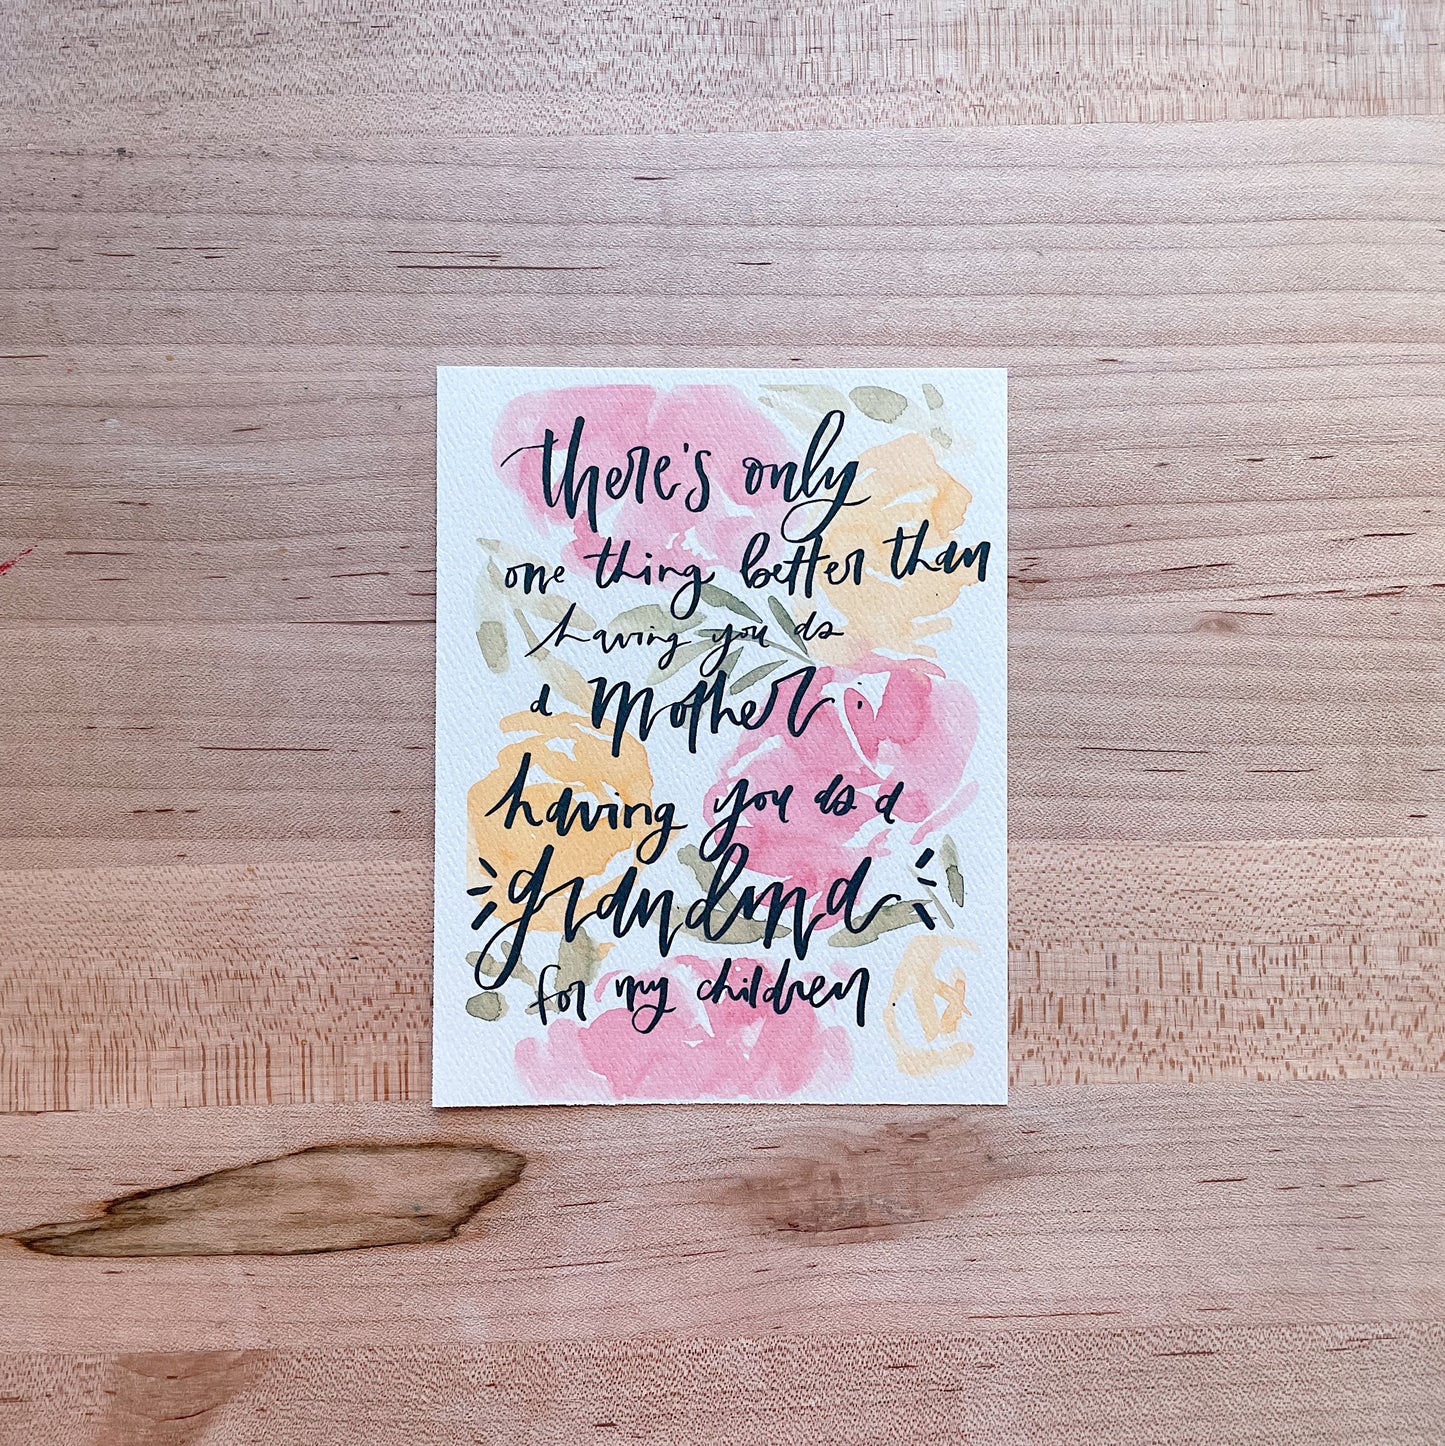 there's only
one thing better than
having you as
a mother:
having you as a
grandma
for my children